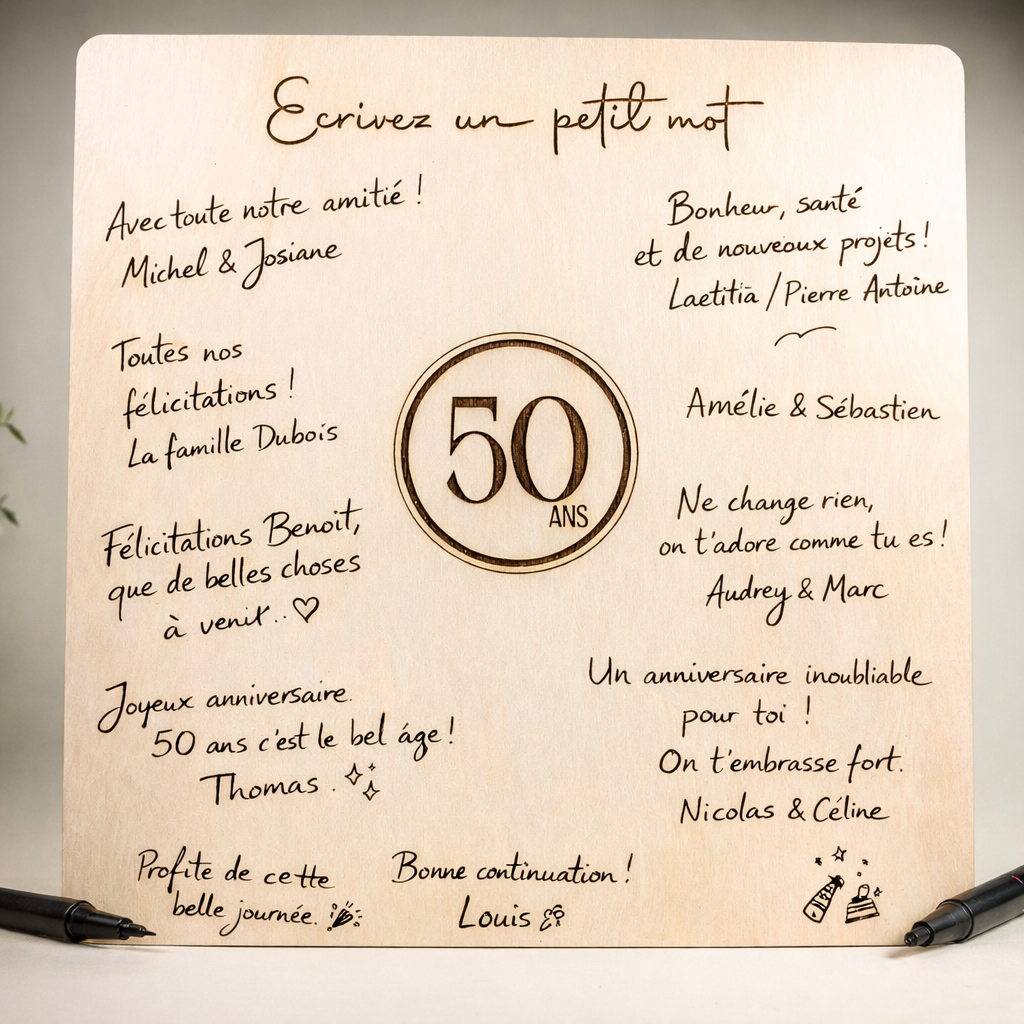 Ecrivez un petit mot
Avec toute notre amitié !
Michel & Josiane
Toutes nos
félicitations !
La famille Dubois
Félicitations Benoit,
que de belles choses
à venir..♡
Joyeux anniversaire.
50 ans c'est le bel áge !
Thomas .
Profite de cette
belle journée.
Bonne continuation !
Louis
50
ANS
Bonheur, santé
et de nouveaux projets !
Laetitia / Pierre Antoine
Amélie & Sébastien
Ne change rien,
on t'adore comme tu es !
Audrey & Marc
Un anniversaire inoubliable
pour toi !
On t'embrasse fort.
Nicolas & Céline